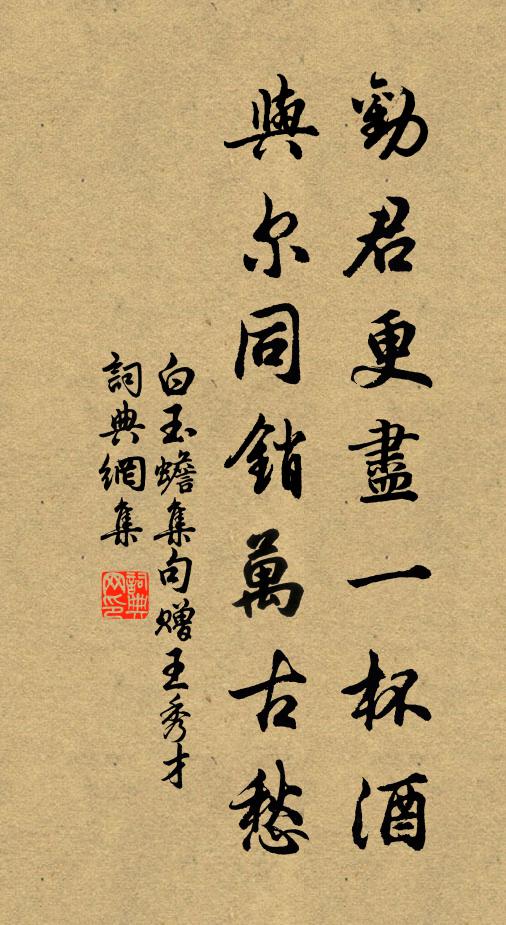 勸君更盡一杯酒
與尔同銷萬古愁
白玉蟾集句贈王秀才
詞典網集
詞典网印